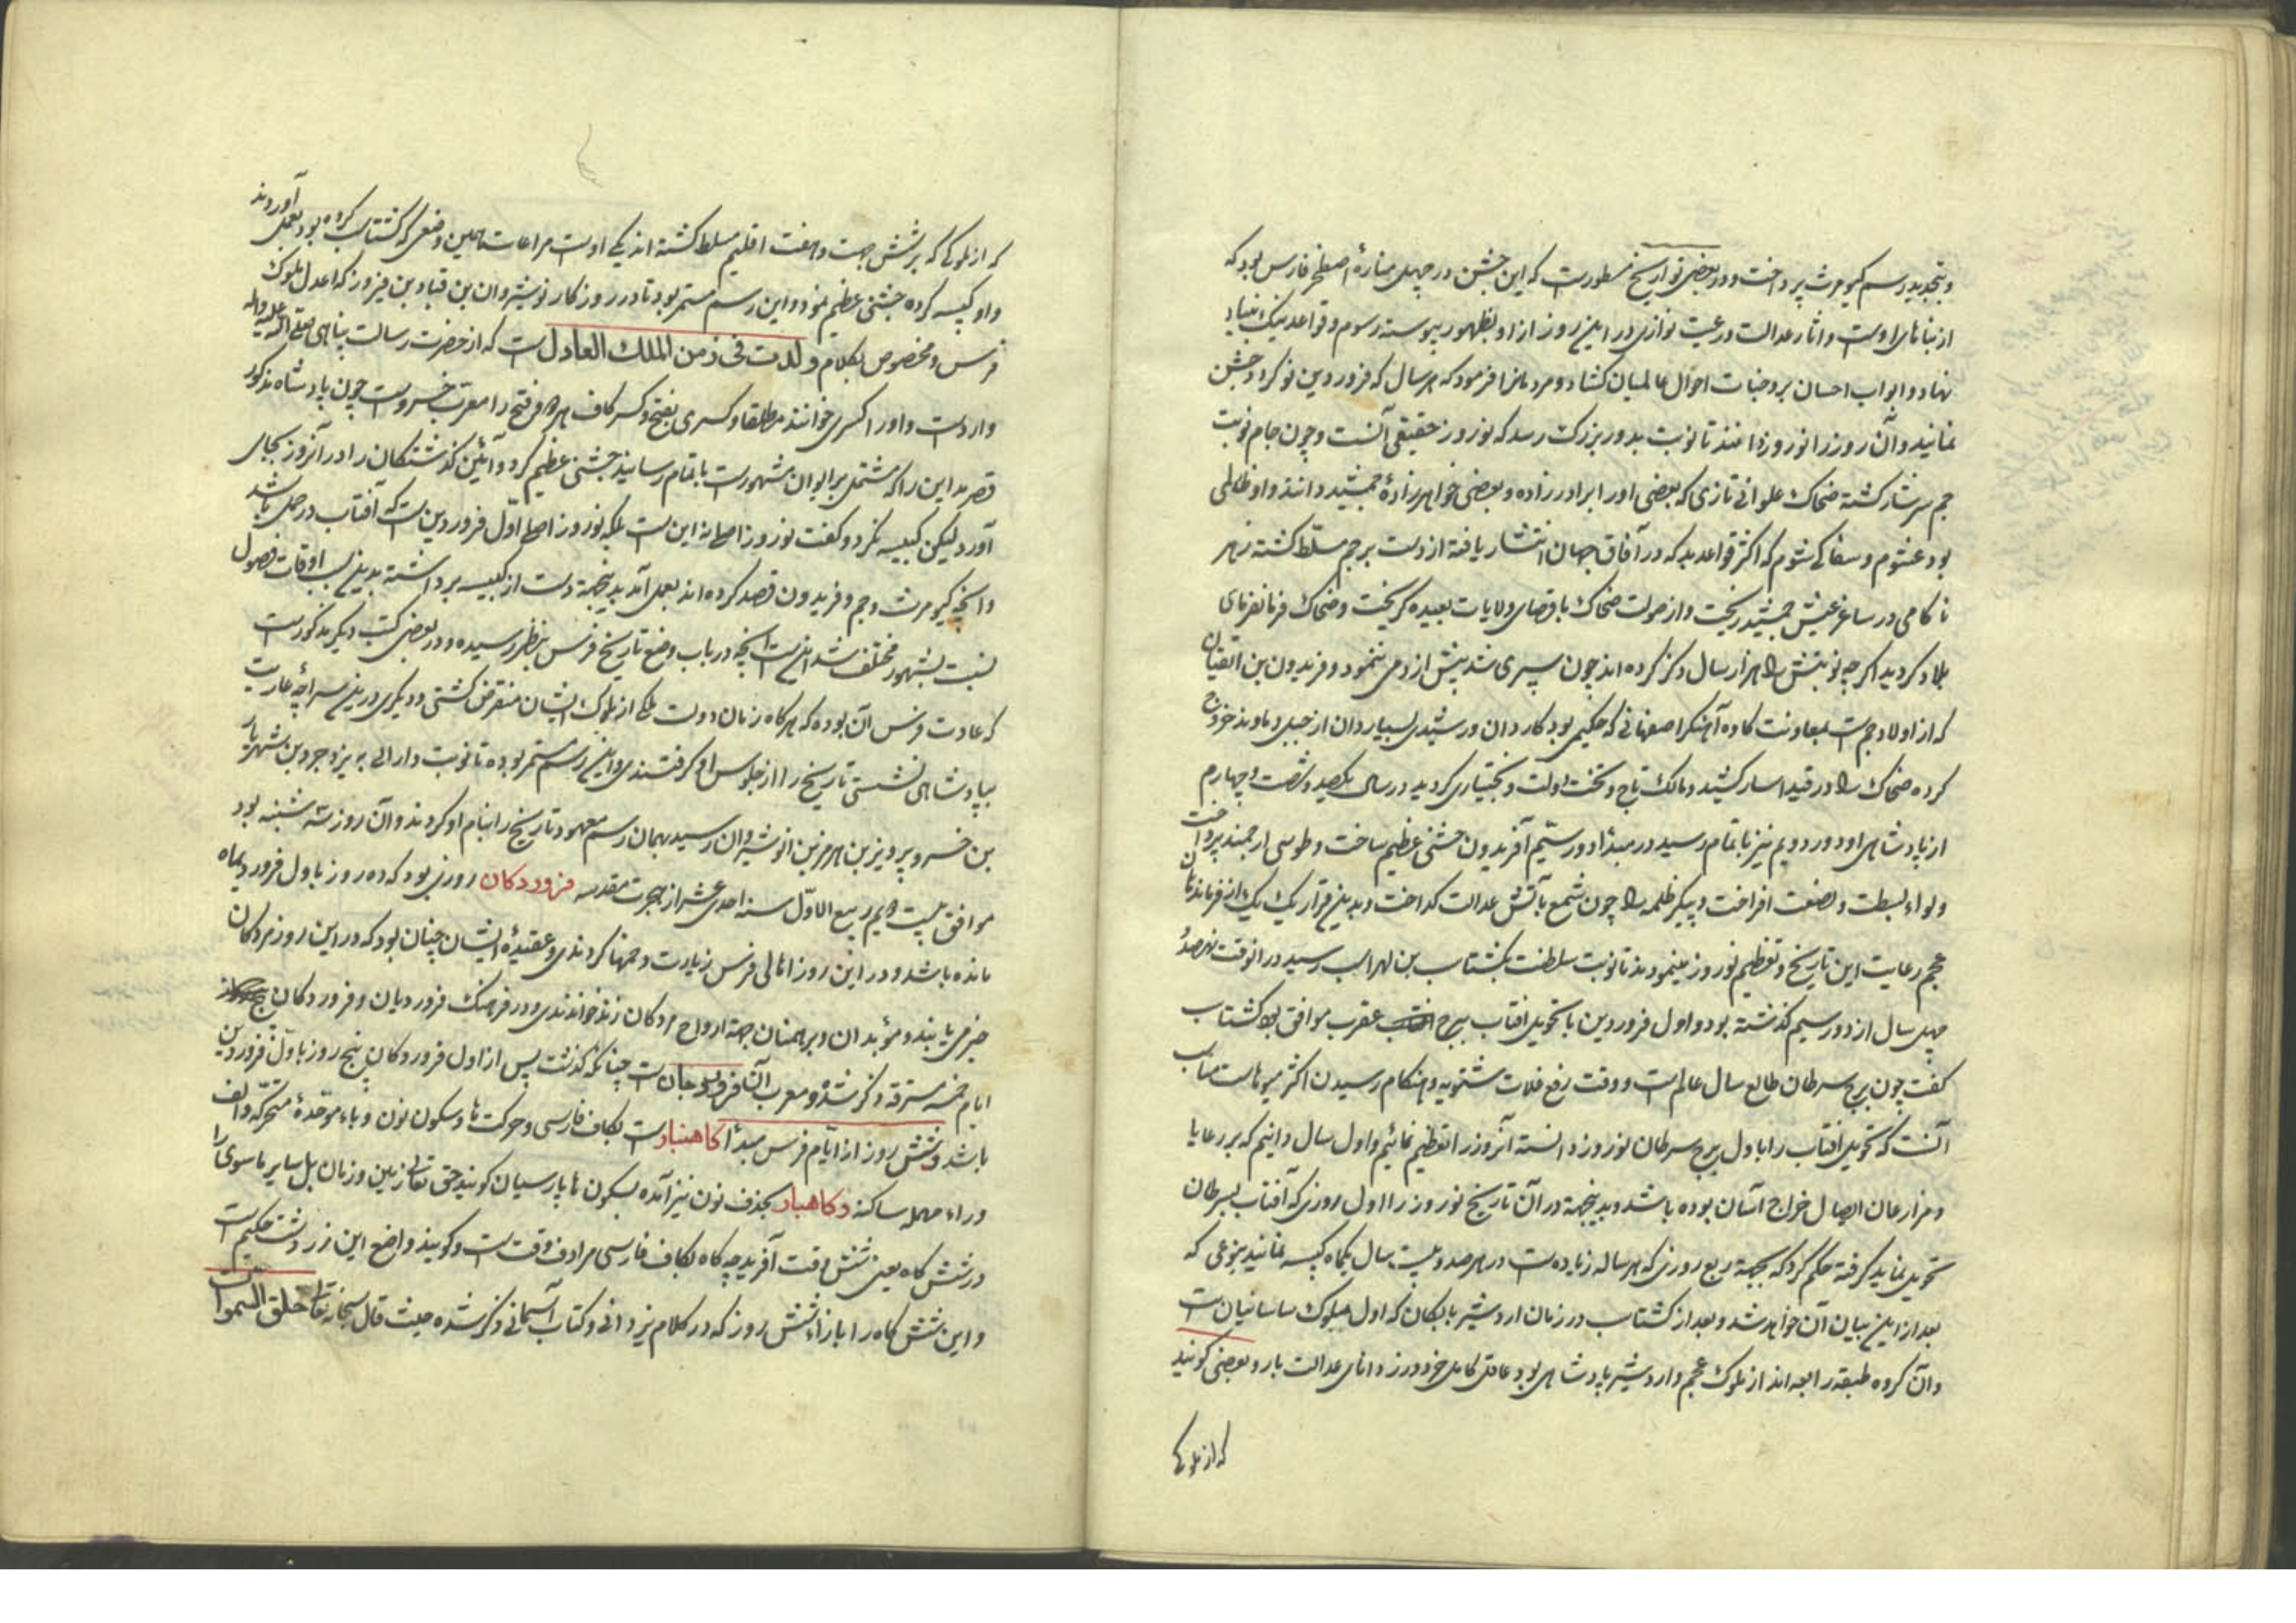 و بتجدید رسم کیومرث پرداخت و در بعضی تواریخ مسطورست که این جشن در چهل منارهٔ اصطخر فارس بود که
از بناهای اوست و اثار عدالت و رعیت نوازی در این روز از او بظهور پیوسته رسوم و قواعد نیک بنیاد
نهاد و ابواب احسان بر وجنات احوال عالمیان کشاد و مردمانرا فرمود که هر سال که فروردین نو کردد جشن
نمایند و آن روز را نوروز دانند تا نوبت بدور بزرک رسد که نوروز حقیقی آنست و چون جام نوبت
جم سرشار کشته ضحاک علوانی تازی که بعضی اورا برادرزاده و بعضی خواهرزادهٔ جمشید دانند و او ظالمی
بود غشوم و سفاکی شوم که اکثر قواعد بد که در آفاق جهان انتشار یافته از دست بر جم مسلّط کشته زهر
ناکامی در ساغر عیش جمشید ریخت و از صولت ضحاک باقصای ولایات بعیده کریخت و ضحاک فرمانفرمای
بلاد کردید اکرچه نوبتش را هزار سال ذکر کرده اند چون سپری شد بیش از دمی ننمود و فریدون بن اتقیان
که از اولاد جم است بمعاونت کاوه آهنکر اصفهانی که حکیمی بود کاردان و رشیدی بسیاردان از جبل دماوند خروج
کرده ضحاک را در قید اسار کشید و مالک تاج و تخت دولت و بختیاری کردید در سال یکصد و شصت و چهارم
از پادشاهی او دور دویم نیز باتمام رسید در مبدٔا دور سیّم آفریدون جشنی عظیم ساخت و طوسی ارجمند پرداخت
و لواء بسطت و نصفت افراخت و پیکر ظلمه را چون شمع بآتش عدالت کداخت و بدین قرار یک یک از فرماندهان
عجم رعایت این تاریخ و تعظیم نوروز مینمودند تا نوبت سلطنت بکشتاسب بن لهراسب رسید در انوقت نهصد و
چهل سال از دور سیم کذشته بود و اول فروردین با تحویل افتاب ببرج عقرب موافق بود کشتاسب
کفت چون برج سرطان طالع سال عالمست و وقت رفع غلات شتویه و هنکام رسیدن اکثر میوهاست مناسب
آنست که تحویل افتاب را باول برج سرطان نوروز دانسته آنروز را تعظیم نمائیم و اول سال دانیم که بر رعایا
و مزارعان ایصال خراج آسان بوده باشد و بدینجهة در آن تاریخ نوروز را اول روزی که آفتاب بسرطان
تحویل نماید کرفته حکم کرد که بجهة ربع روزی که هر ساله زیاده است در هر صد و بیست سال یکماه کبیسه نمایند بنوعی که
بعد از این بیان آن خواهد شد و بعد از کشتاسب در زمان اردشیر بابکان که اول ملوک ساسانیان است
و آن کروه طبقه رابعه اند از ملوک عجم و اردشیر پادشاهی بود عاقل کامل خردورز دانای عدالت بار و بعضی کویند
که از ملوکی
که از ملوکی که بر شش جهت و هفت اقلیم مسلط کشته اند یکی اوست مراعات همین وضعی که کشتاسب کرده بود بعمل آوردند
و او کبیسه کرده جشنی عظیم نمود و این رسم مستمر بود تا در روزکار نوشیروان بن قباد بن فیروز که اعدل ملوک
فرس و مخصوص بکلام ولدت فی زمن الملک العادل است که از حضرت رسالت پناهی صلی الله علیه و اله
وارد است و اورا کسری خوانند مطلقا و کسری بفتح و کسر کاف هر دو و فتح را معرب خسرو است چون پادشاه مذکور
قصر مداین را که مشتمل بر ایوان مشهورست باتمام رسانید جشنی عظیم کرد و آئین کذشتکان را در آنروز بجای
آورد لیکن کبیسه نکرد و کفت نوروز اصلی نه این است بلکه نوروز اصلی اوّل فروردین است که آفتاب در حمل باشد
و انچه کیومرث و جم و فریدون قصد کرده اند بعمل آید بدینجهة دست از کبیسه برداشته بدین سبب اوقات فصول
نسبت بشهور مختلف شد اینست انچه در باب وضع تاریخ فرس بنظر رسیده و در بعضی کتب دیکر مذکورست
که عادت فرس آن بوده که هرکاه زمان دولت ملکی از ملوک ایشان منقرض کشتی و دیکری درین سراچهٔ عاریت
بپادشاهی نشستی تاریخ را از جلوس او کرفتندی و این رسم مستمر بوده تا نوبت دارائی به یزدجرد بن شهریار
بن خسرو پرویز بن هرمز بن انوشیروان رسید بهمان رسم معهود تاریخ را بنام او کردند و آن روز سه شنبه بود
موافق بیست و دویم ربیع الاوّل سنه احدی عشر از هجرت مقدسه فروردکان روزی بود که ده روز باول فروردیماه
مانده باشد و در این روز اهالی فرس زیارت دخمها کردندی و عقیدهٔ ایشان چنان بود که در این روز مردکان
خبر می یابند و مؤبدان و برهمنان بجهة ارواح مردکان زند خواندندی و در فرهنک فروردیان و فروردکان
ایام خمسه مسترقه ذکر شده و معرب آن فروردجان است چنانکه کذشت پس از اول فروردکان پنج روز باول فروردین
باشد و شش روز از ایّام فرس مبدٔا کاهنبار است بکاف فارسی و حرکت ها و سکون نون و باء موحّدهٔ متحرکه و الف
و راء مهمله ساکنه و کاهبار بحذف نون نیز آمده بسکون ها پارسیان کویند حق تعالی زمین و زمان بل سایر ماسوی را
در شش کاه یعنی شش وقت آفرید چه کاه بکاف فارسی مرادف وقت است و کویند واضع این زردشت حکیم است
و این شش کاه را بازاء شش روز که در کلام یزدانی و کتاب آسمانی ذکر شده حیث قال سبحانه تعالی خلق السموات